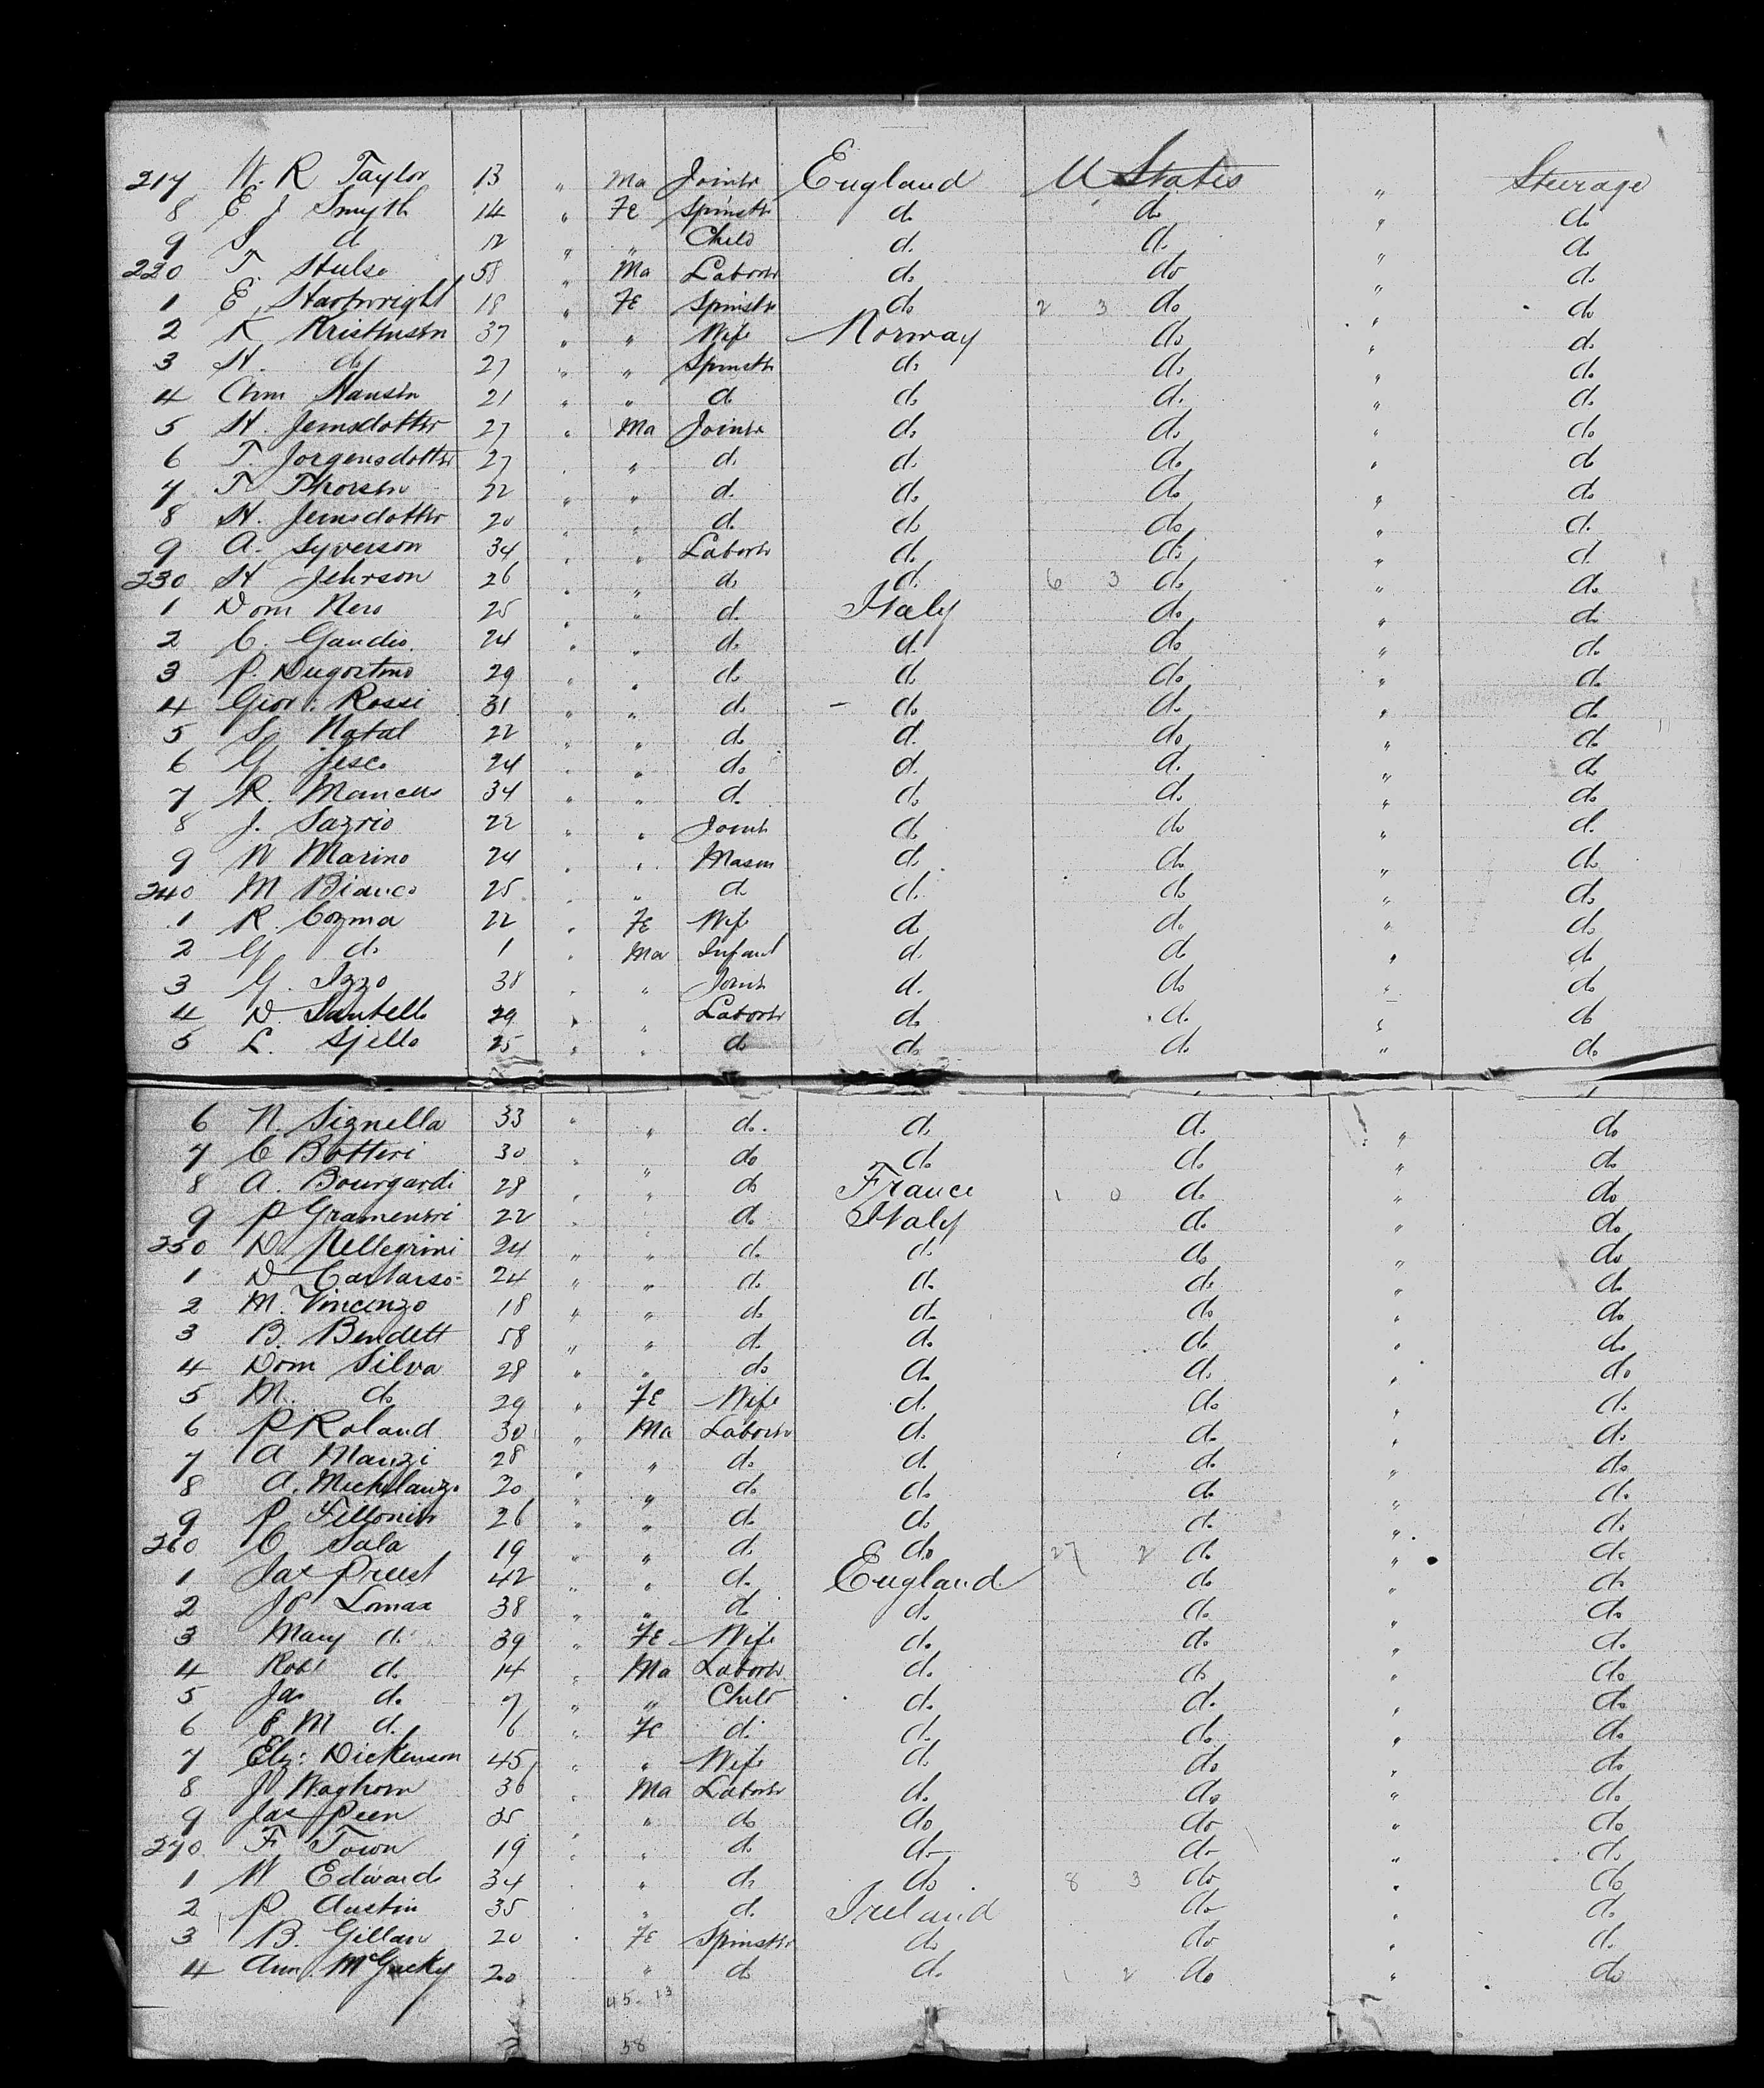 217 W. R Taylor 13 " Ma Jointr England U States " Steerage
8 E J Smyth 14 " Fe Spinstr do do " do
9 J do 12 " " Child do do " do
220 T. Hulse 58 " Ma Laborer do do " do
1 E Hartwright 18 " Fe Spinstr do 2 3 do " do
2 K Kristensen 37 " " Wife Norway do " do
3 H. do 27 " " Spinstr do do " do
4 Chm Hansen 21 " " do do do " do
5 H. Jemsdotter 27 " Ma Jointr do do " do
6 T. Jorgensdotter 27 " " do do do " do
7 T. Thorsen 22 " " do do do " do
8 H. Jemsdotter 20 " " do do do " do
9 A. Syverson 34 " " Laborer do do " do
230 H Jehrson 26 " " do do 6 3 do " do
1 Dom Nero 25 " " do Italy do " do
2 C. Gaudio 24 " " do do do " do
3 P. Dugostino 29 " " do do do " do
4 Giov: Rossi 31 " " do do do " do
5 S. Natal 22 " " do do do " do
6 G Jesco 24 " " do do do " do
7 R. Mancus 34 " " do do do " do
8 J. Sazrio 22 " " Jointr do do " do
9 N Marino 24 " " Mason do do " do
240 M Bianco 25 " " do do do " do
1 R. Cozma 22 " Fe Wife do do " do
2 G do 1 " Ma Infant do do " do
3 G. Izzo 38 " " Jointr do do " do
4 D. Santello 29 " " Laborer do do " do
5 L. Sjello 25 " " do do do " do
6 N. Signella 33 " " do do do " do
7 C Botteri 30 " " do do do " do
8 A. Bourgardi 28 " " do France 1 0 do " do
9 P Gramentri 22 " " do Italy do " do
250 D. Pellegrini 24 " " do do do " do
1 D Cartarso 24 " " do do do " do
2 M. Vincenzo 18 " " do do do " do
3 B. Bendett 58 " " do do do " do
4 Dom Silva 28 " " do do do " do
5 M. do 29 " Fe Wife do do " do
6 P Roland 30 " Ma Laborer do do " do
7 A Manzi 28 " " do do do " do
8 A. Michelanzo 20 " " do do do " do
9 P. Fellonier 26 " " do do do " do
260 C Sala 19 " " do do 27 2 do " do
1 Jas Preest 42 " " do England do " do
2 Jos Lomax 38 " " do do do " do
3 Mary do 39 " Fe Wife do do " do
4 Robt do 14 " Ma Laborer do do " do
5 Jas do 7 " " Child do do " do
6 E M do 6 " Fe do do do " do
7 Elz: Dickenson 45 " " Wife do do " do
8 J. Waghorn 36 " Ma Laborer do do " do
9 Jas Peen 35 " " do do do " do
270 F Town 19 " " do do do " do
1 W Edwards 34 " " do do 8 3 do " do
2 P. Austin 35 " " do Ireland do " do
3 B. Gillan 20 " Fe Spinstr do do " do
4 Ann McGucky 20 " " do do 1 2 do " do
45. 13
58